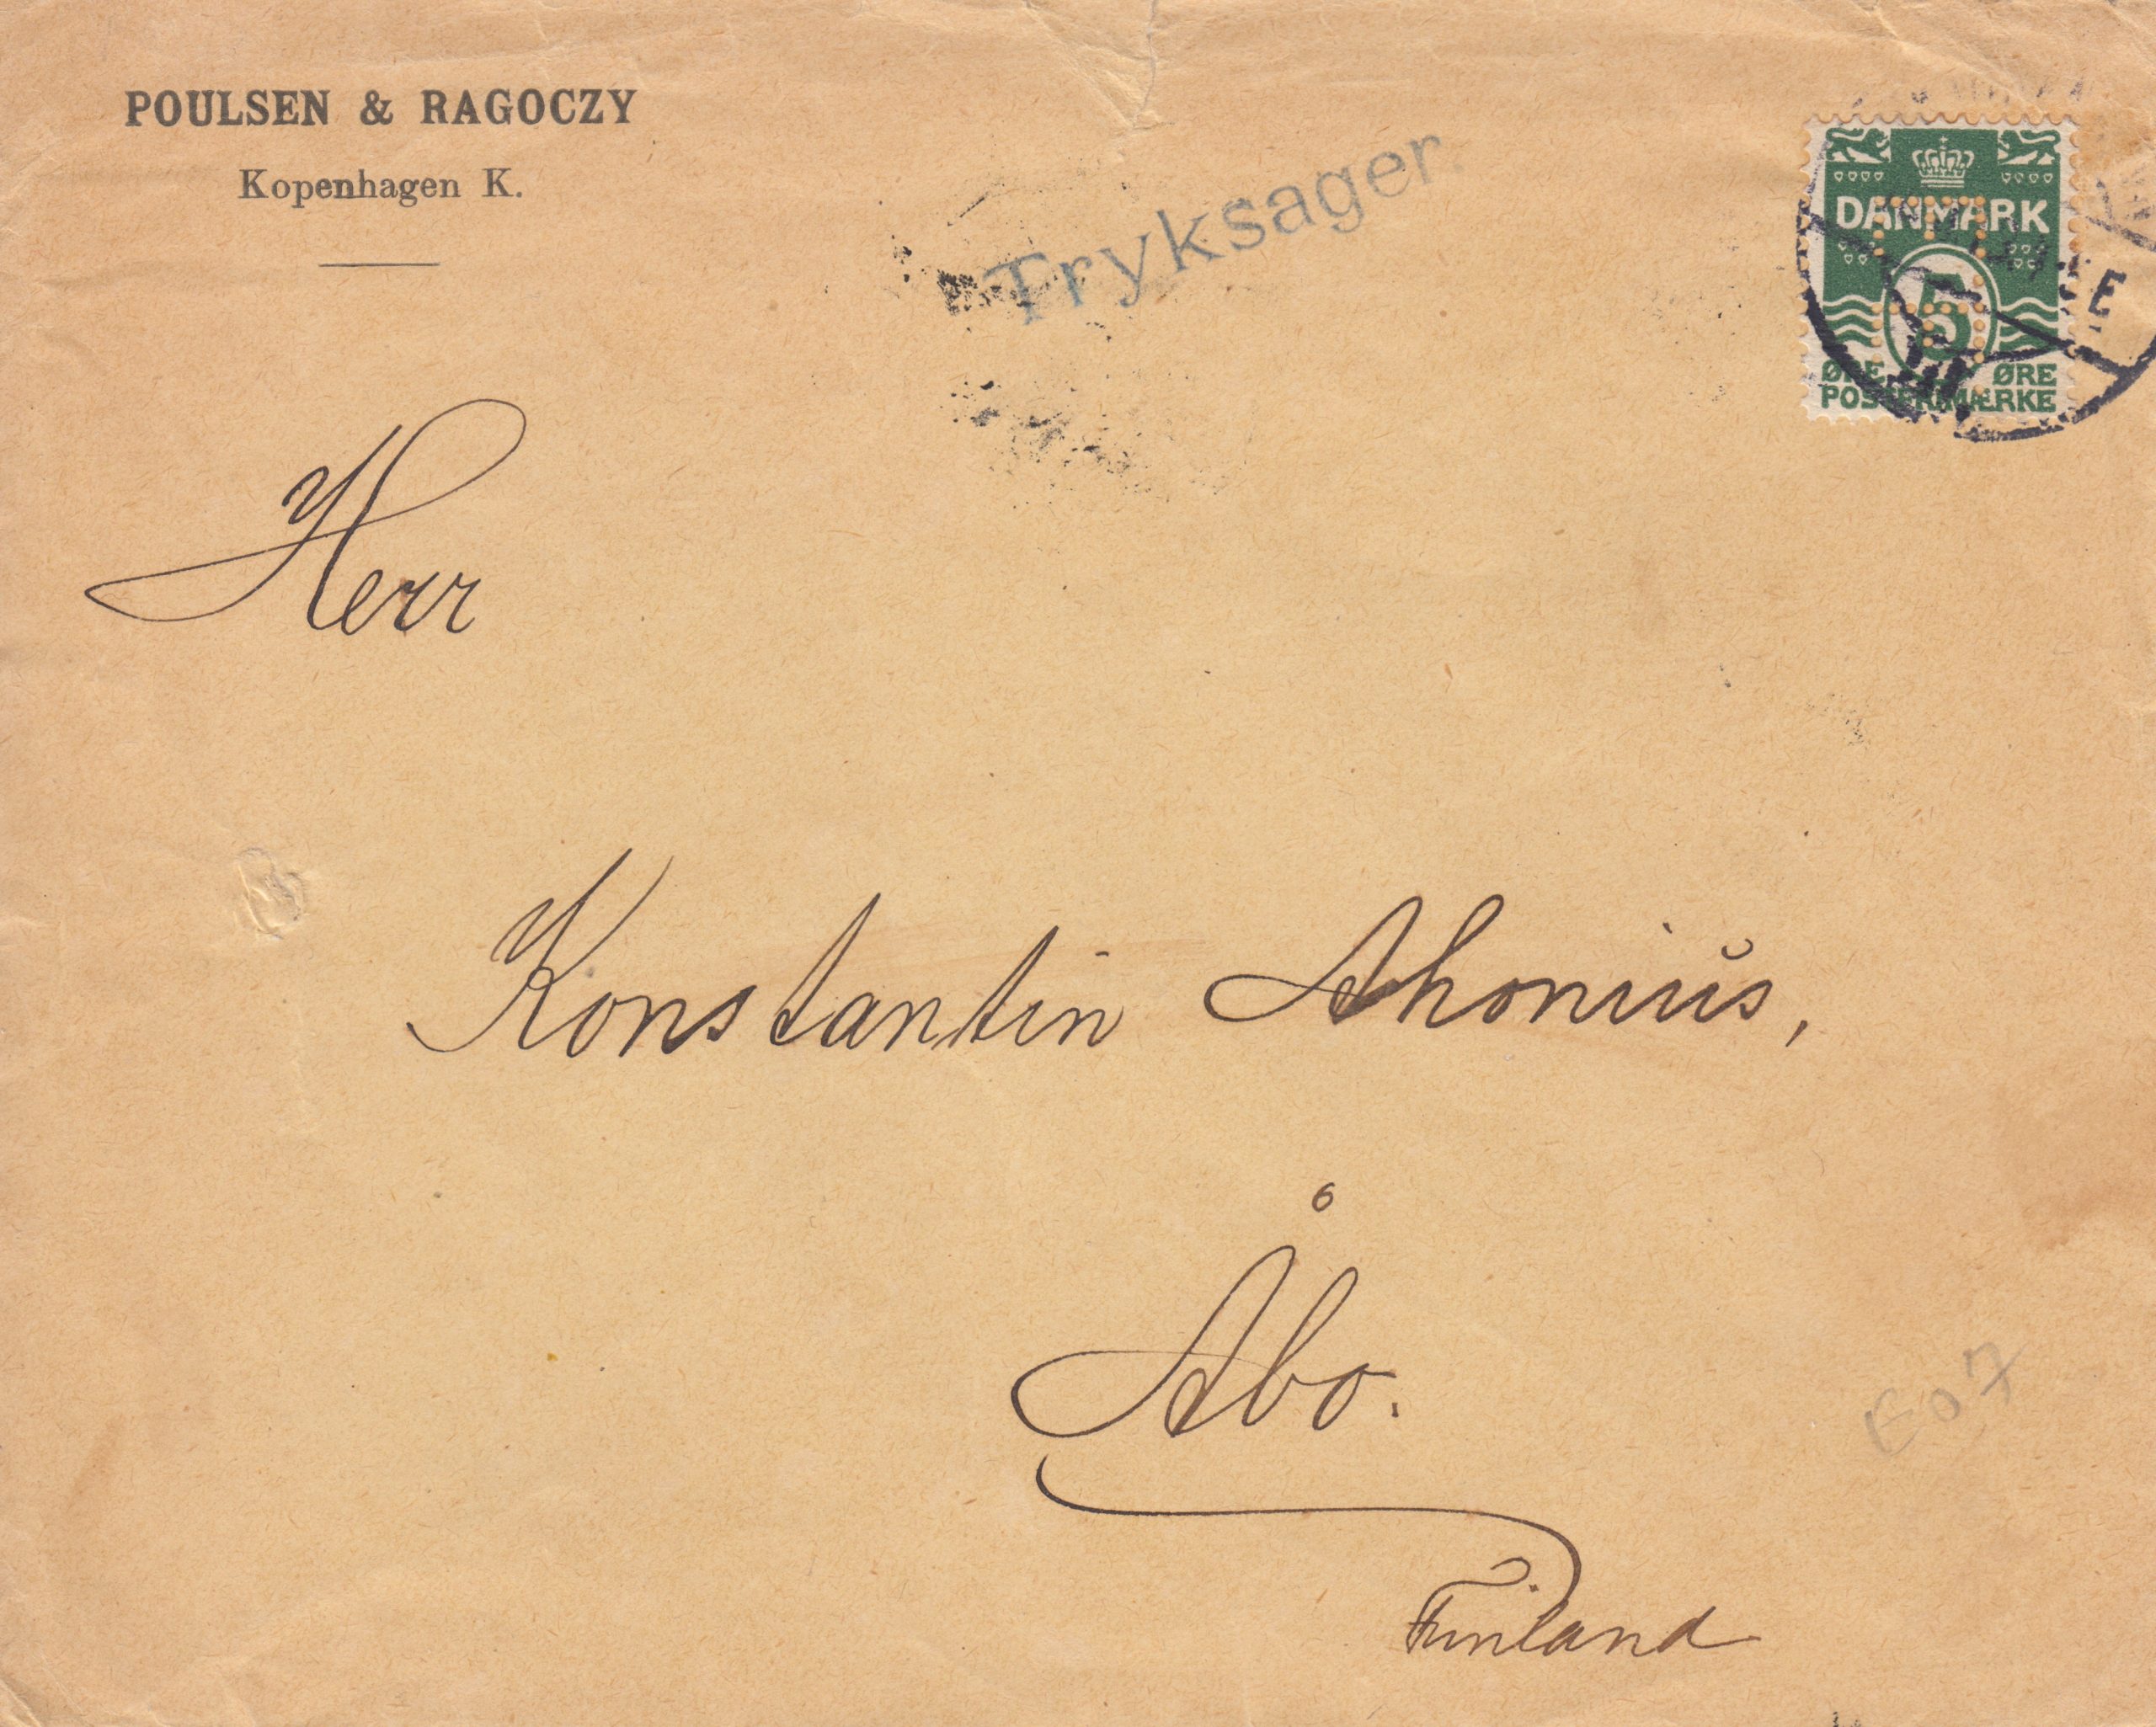 POULSEN & RAGOCZY
Kopenhagen K.
Tryksager.
DANMARK
5
ØRE ØRE
POSTFRIMÆRKE
Herr
Konstantin Ahonius,
Åbo.
Finland
E07